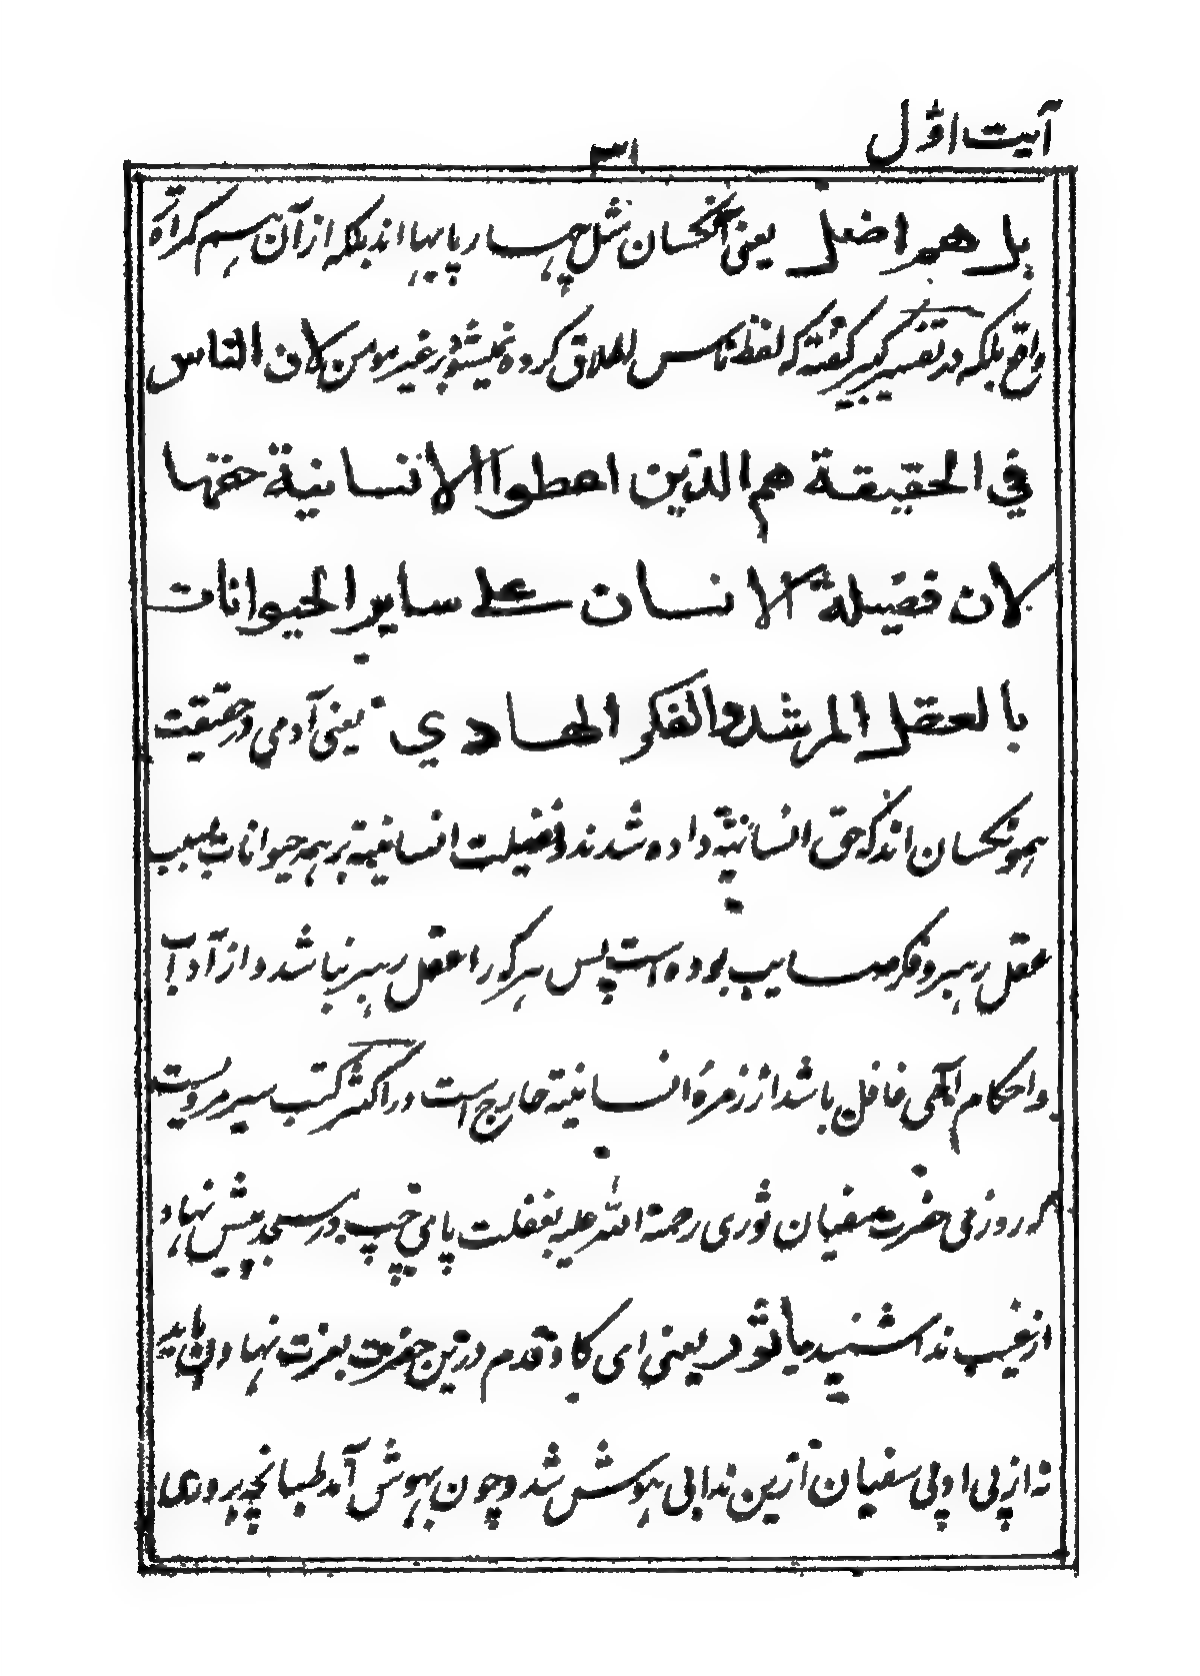 آیت اوّل
۳۱
بل هم اضل یعنی آنکسان مثل چهار پایها اند بلکه از آن هم گمراه
واقع بلکه در تفسیر کبیر گفته که لفظ ناس اطلاق کرده نمیشود بر غیر مومن لان الناس
فی الحقیقة هم الذین اعطوا الانسانیة حقها
لان فضیلة الانسان علی سایر الحیوانات
بالعقل المرشد والفکر الهادی یعنی آدمی در حقیقت
همونکسان اند که حق انسانیة داده شدند و فضیلت انسانیة بر همه حیوانات بسبب
عقل رهبر و فکر صایب بوده است پس هر کرا عقل رهبر نباشد و از آداب
و احکام الهی غافل باشد از زمرهٔ انسانیة خارج است در اکثر کتب سیر مرویست
که روزی حضرت سفیان ثوری رحمة الله علیه بغفلت پای چپ در مسجد پیش نهاد
از غیب ندا شنید یا ثور یعنی ای گاو قدم درین حضرت بعزت نهادن باید
نه از بی ادبی سفیان ازین ندا بی هوش شد و چون بهوش آمد طبانچه بر روی